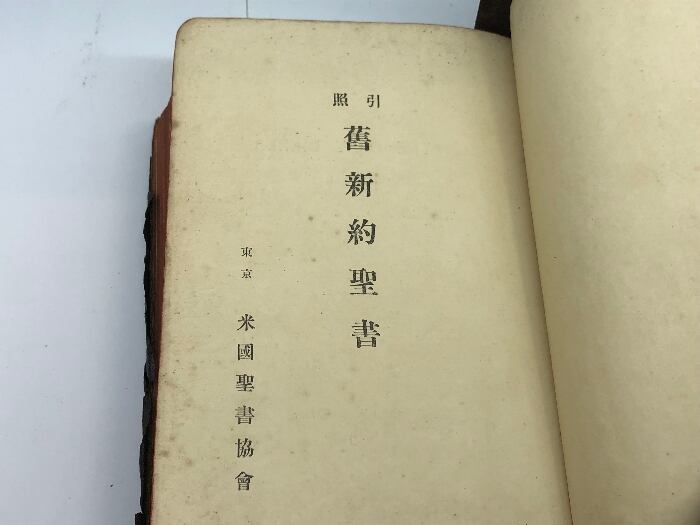 引照
舊新約聖書
東京
米國聖書協會